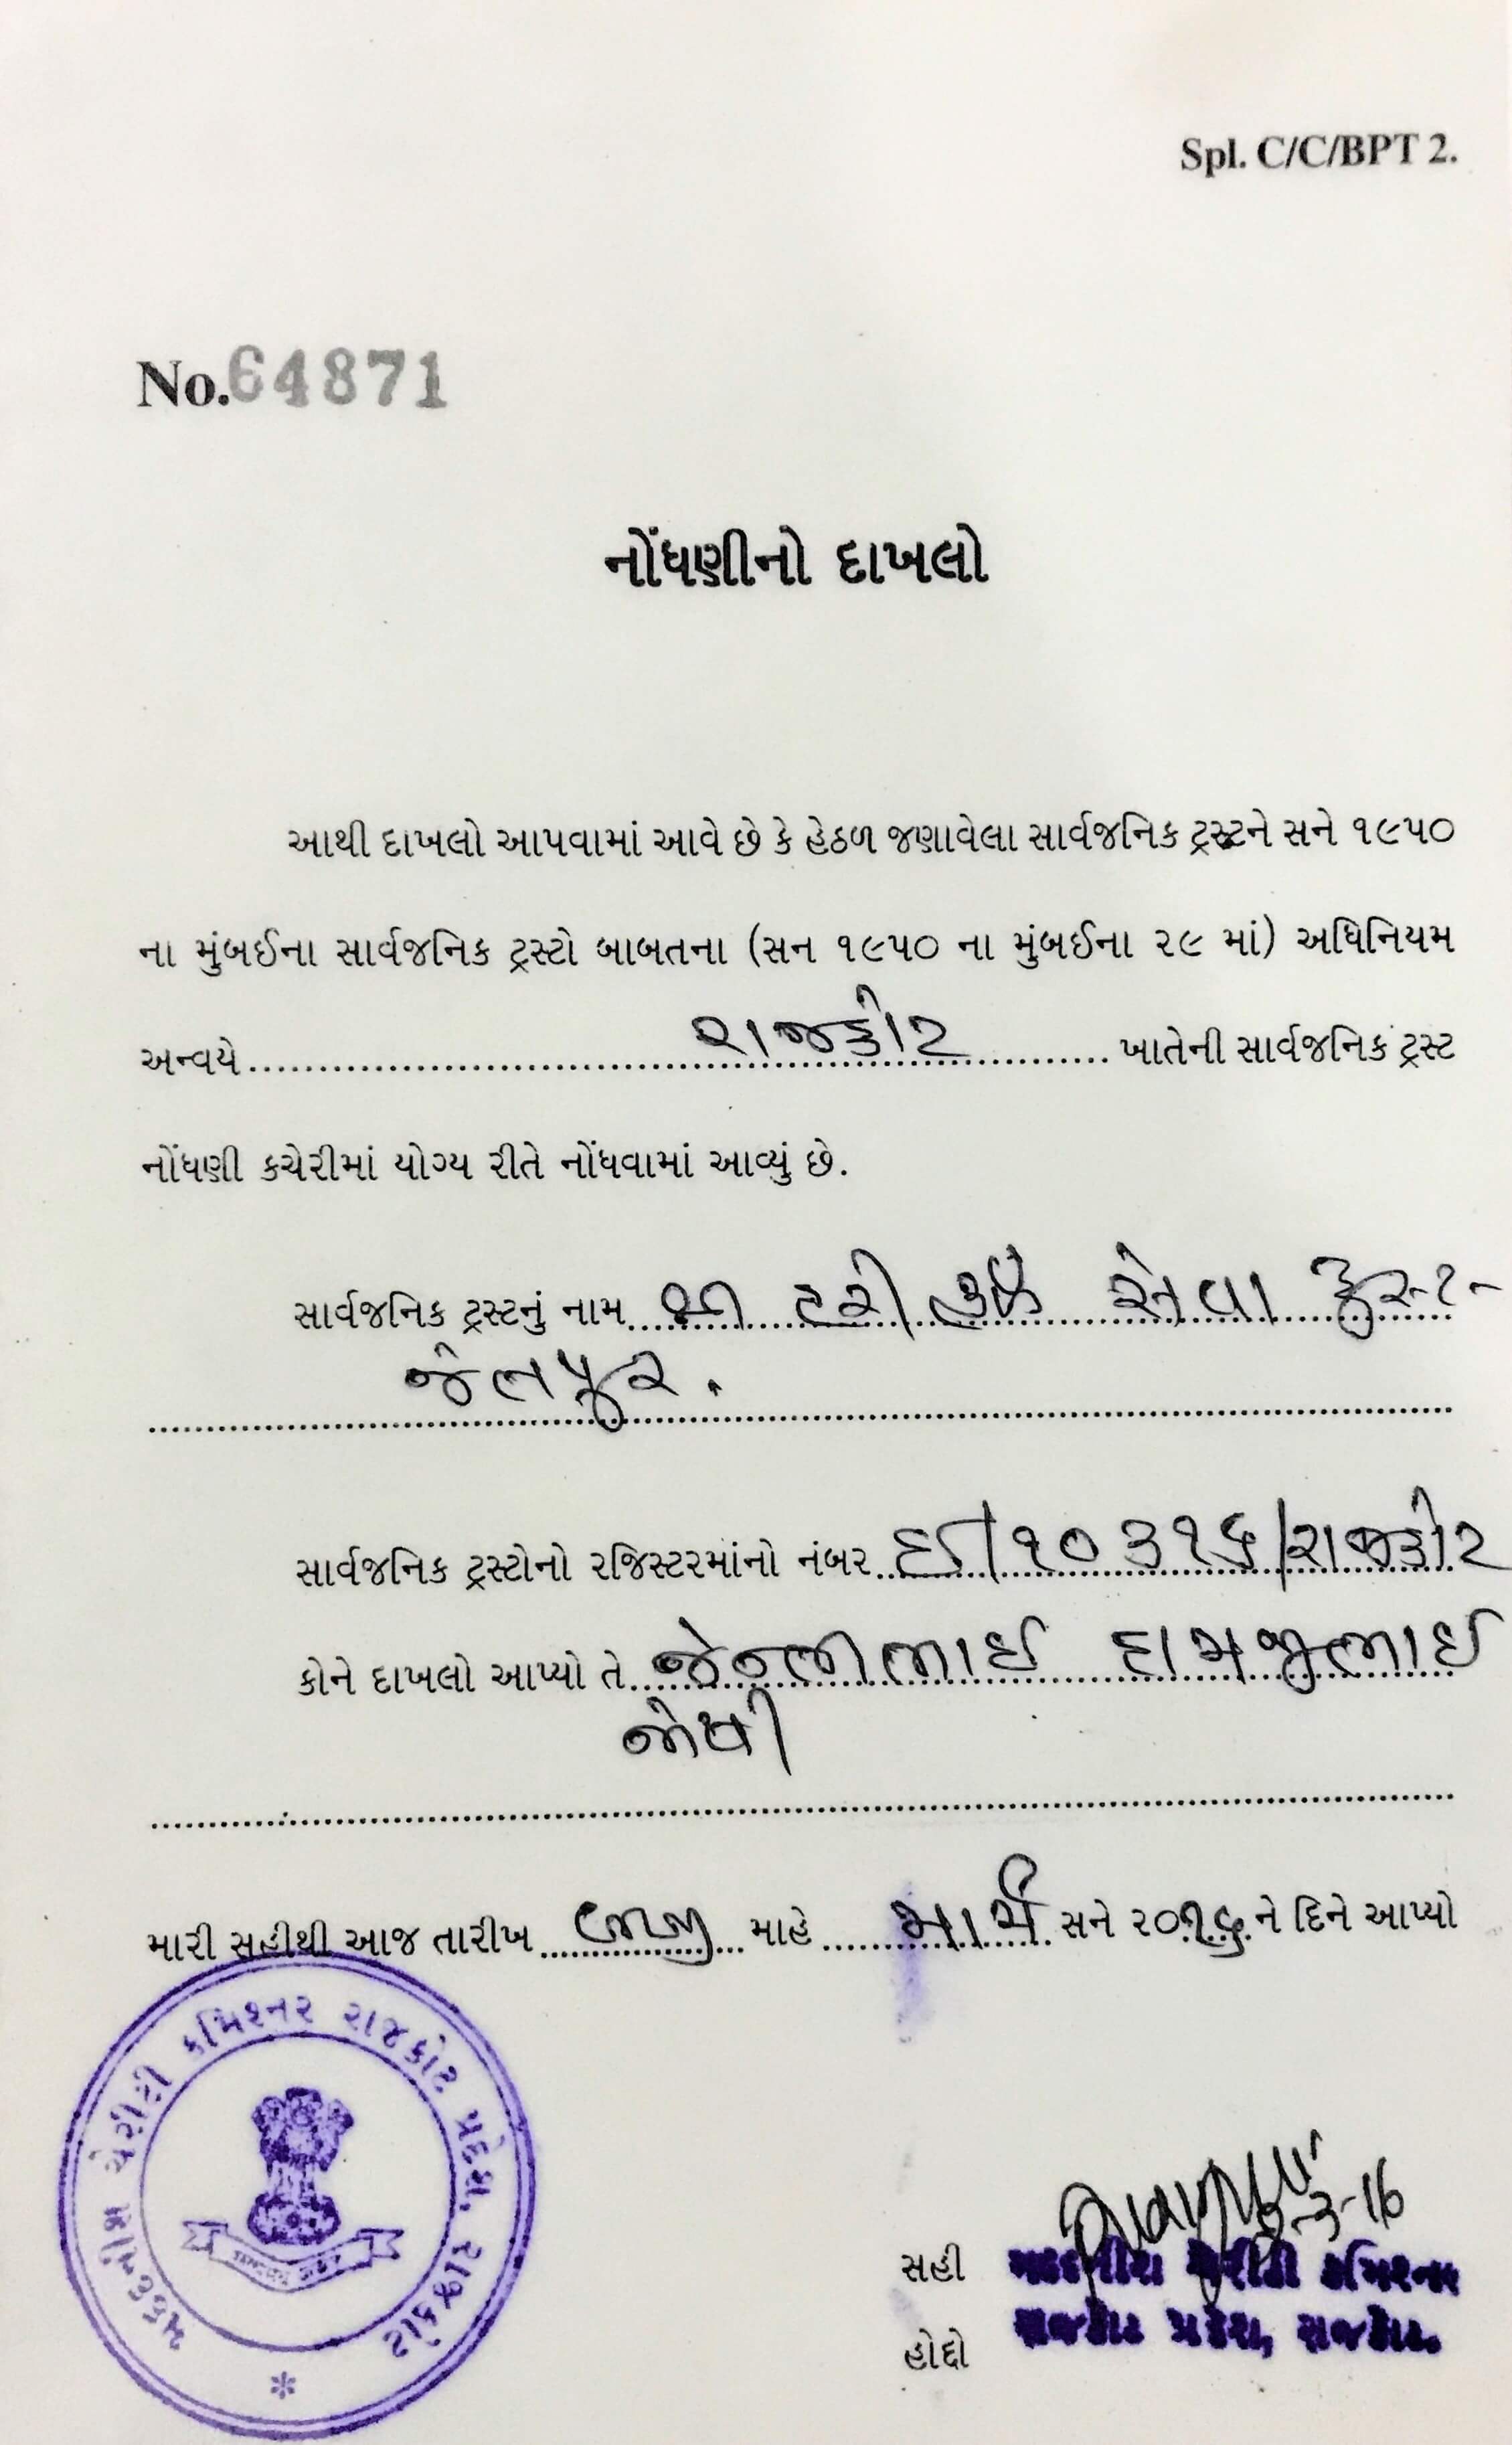 Spl. C/C/BPT 2.
No. 64871
નોંધણીનો દાખલો
આથી દાખલો આપવામાં આવે છે કે હેઠળ જણાવેલા સાર્વજનિક ટ્રસ્ટને સને ૧૯૫૦
ના મુંબઈના સાર્વજનિક ટ્રસ્ટો બાબતના (સન ૧૯૫૦ ના મુંબઈના ૨૯ માં) અધિનિયમ
અન્વયે રાજકોટ ખાતેની સાર્વજનિક ટ્રસ્ટ
નોંધણી કચેરીમાં યોગ્ય રીતે નોંધવામાં આવ્યું છે.
સાર્વજનિક ટ્રસ્ટનું નામ શ્રી હરી સેવા ટ્રસ્ટ -
જેતપુર.
સાર્વજનિક ટ્રસ્ટોનો રજિસ્ટરમાંનો નંબર ઈ/૧૦૩૧૬/રાજકોટ
કોને દાખલો આપ્યો તે જેન્તીભાઈ દામજીભાઈ
જોષી
મારી સહીથી આજ તારીખ માહે માર્ચ સને ૨૦૧૬ ને દિને આપ્યો
મદદનીશ ચેરીટી કમિશ્નર રાજકોટ પ્રદેશ, રાજકોટ
*
-3-16
સહી મદદનીશ ચેરીટી કમિશ્નર
હોદ્દો રાજકોટ પ્રદેશ, રાજકોટ.